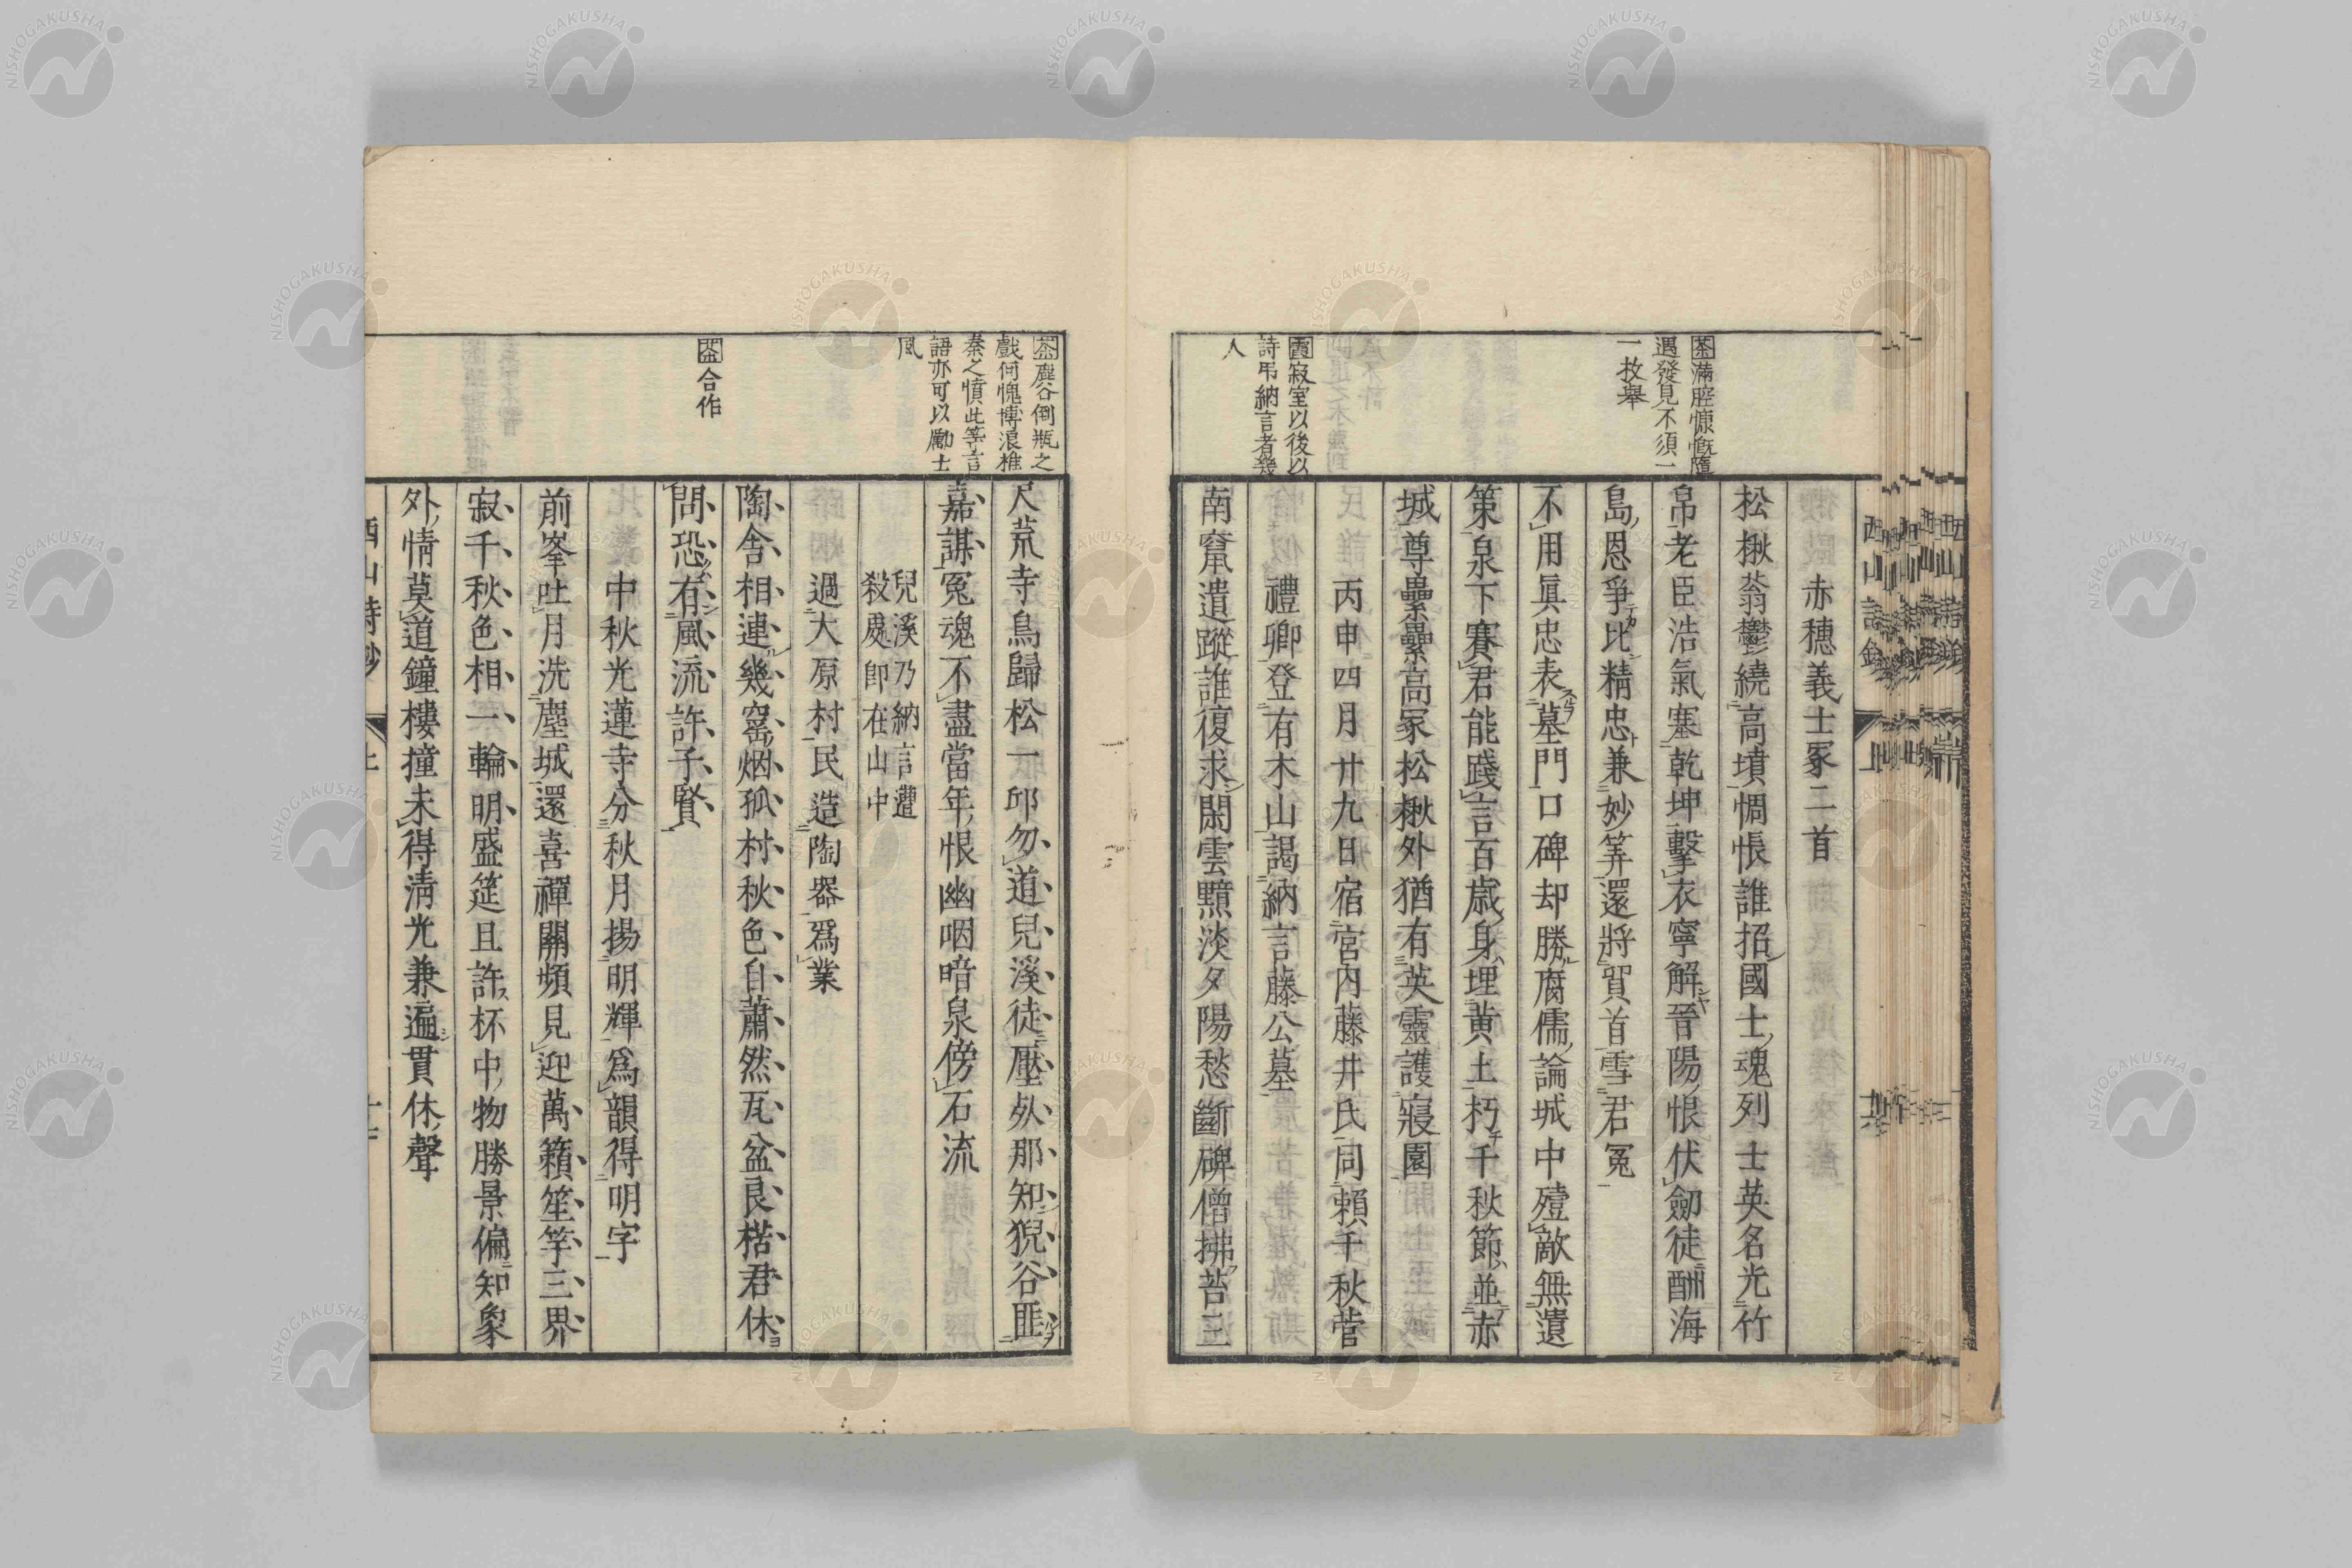 赤穗義士冢二首
松楸蓊鬱繞高墳惆悵誰招國士魂列士英名光竹
帛老臣浩氣塞乾坤擊衣寧解晉陽恨伏劒徒酬海
島恩爭比精忠兼妙筭還將賀首雪君冤
不用眞忠表墓門口碑却勝腐儒論城中殪敵無遺
策泉下賽君能踐言百歲身埋黃土朽千秋節並赤
城尊纍纍高冢松楸外猶有英靈護寢園
丙申四月廿九日宿宮內藤井氏同賴千秋菅
禮卿登有木山謁納言藤公墓
南竄遺蹤誰復求閑雲黯淡夕陽愁斷碑僧拂苔三
茶滿腔慷慨隨
遇發見不須一
一枚舉
霞寂室以後以
詩弔納言者幾
人
尺荒寺鳥歸松一邱勿道兒溪徒壓㷀那知猊谷匪
嘉謀冤魂不盡當年恨幽咽暗泉傍石流
兒溪乃納言遭
殺處卽在山中
過大原村民造陶器爲業
陶舍相連幾窰烟孤村秋色自蕭然瓦盆良楛君休
問恐有風流許子賢
中秋光蓮寺分秋月揚明輝爲韻得明字
前峯吐月洗塵城還喜禪關頻見迎萬籟笙竽三界
寂千秋色相一輪明盛筵且許杯中物勝景偏知象
外情莫道鐘樓撞未得淸光兼遍貫休聲
茶塵谷倒瓶之
戲何愧博浪椎
秦之憤此等言
語亦可以勵士
風
茶合作
西山詩鈔 上
NISHOGAKUSHA